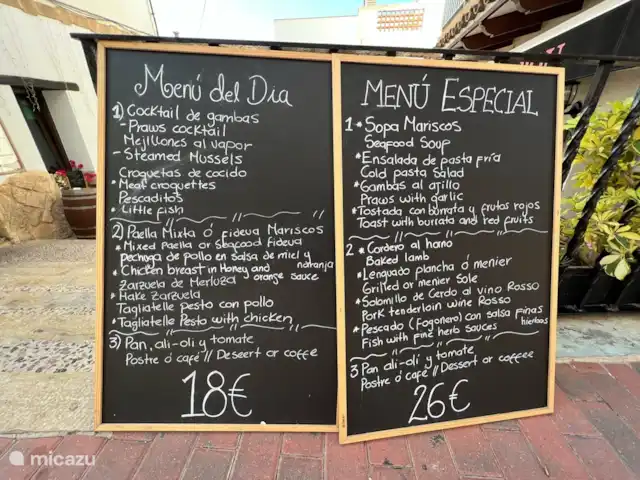 Menú del Dia
1) Cocktail de gambas
- Praws cocktail
Mejillones al vapor
- Steamed Mussels
Croquetas de cocido
* Meat croquettes
Pescaditos
* Little fish
2) Paella Mixta ó fideva Mariscos
* Mixed Paella or Seafood Fideva
Pechuga de pollo en salsa de miel y naranja
* Chicken breast in Honey and orange sauce
Zarzuela de Merluza
* Hake Zarzuela
Tagliatelle pesto con pollo
* Tagliatelle Pesto with chicken
3) Pan, ali-oli y tomate
Postre ó café // Dessert or coffe
18€
MENÚ ESPECIAL
1 * Sopa Mariscos
Seafood Soup
* Ensalada de pasta fría
Cold pasta Salad
* Gambas al ajillo
Praws with garlic
* Tostada con burrata y frutos rojos
Toast with burrata and red fruits
2 * Cordero al horno
Baked lamb
* Lenguado plancha ó menier
Grilled or menier Sole
* Solomillo de Cerdo al vino Rosso
Pork tenderloin wine Rosso
* Pescado (Fogonero) con salsa finas hierbas
Fish with fine herb sauces
3 Pan ali-oli y tomate
Postre ó café // Dessert or coffee
26€
micazu